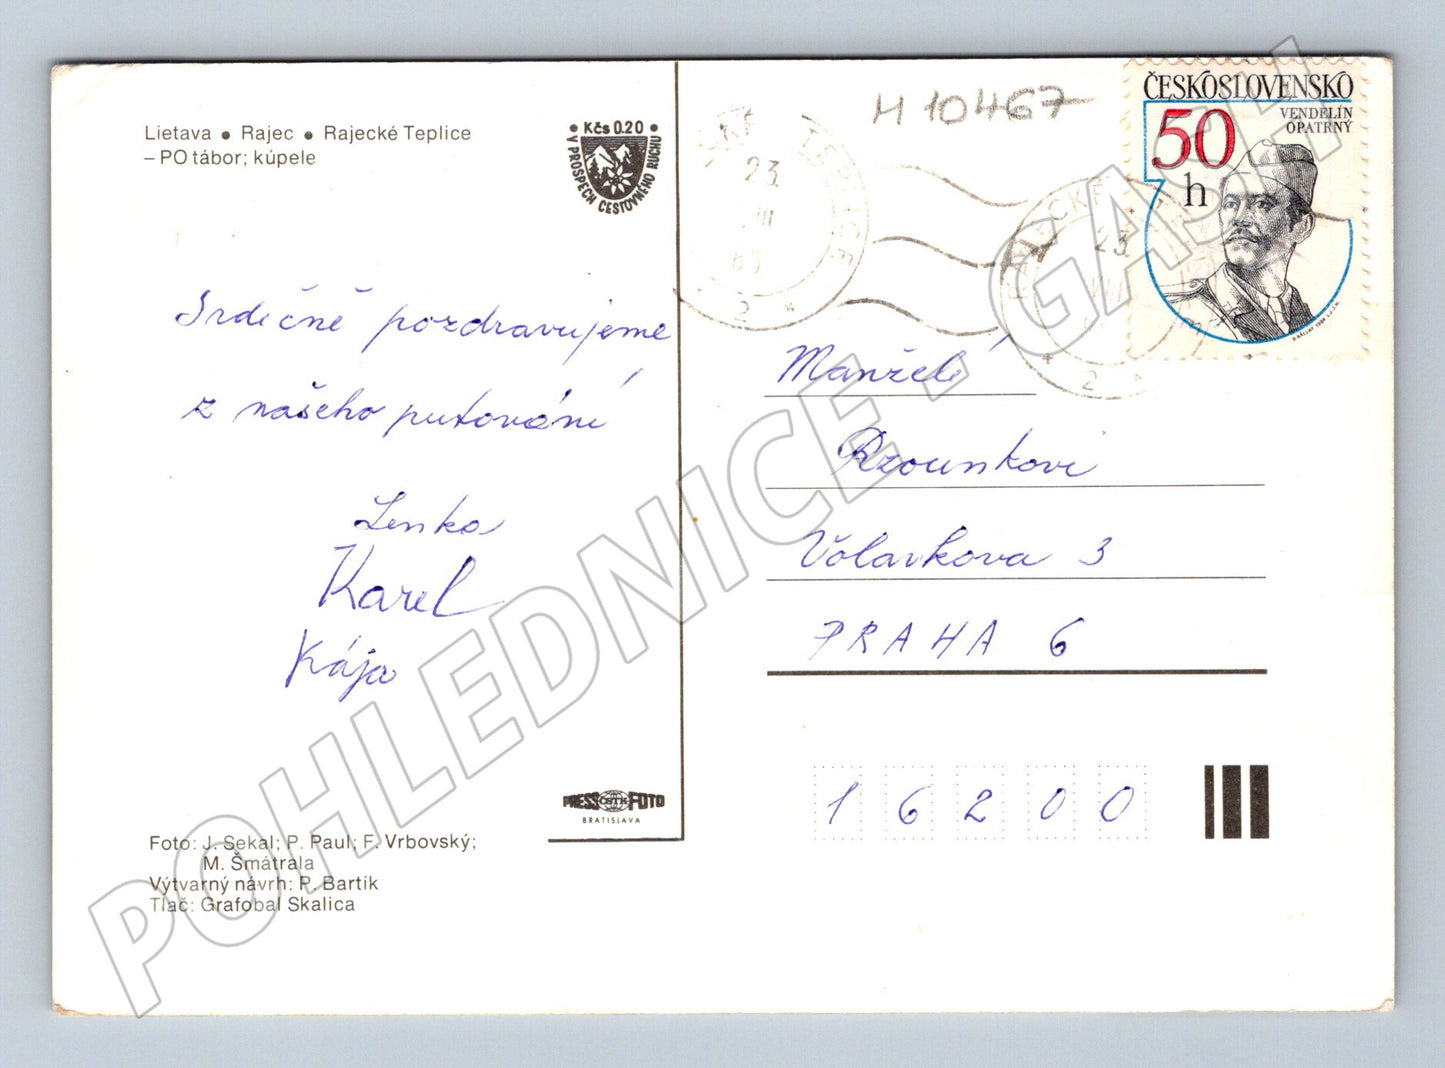 Lietava • Rajec • Rajecké Teplice
– PO tábor; kúpele
• Kčs 0.20 •
V PROSPECH CESTOVNÉHO RUCHU
M 10467
ČESKOSLOVENSKO
VENDELÍN
OPATRNÝ
50
h
TEPLICE
23
85
2 *
RAJECKÉ
23
VII
* 2 *
Srdečně pozdravujeme
z našeho putování
Lenka
Karel
Kája
Manželé
Rzounkovi
Volavkova 3
PRAHA 6
16200
PRESS ČSTK FOTO
BRATISLAVA
Foto: J. Sekal; P. Paul; F. Vrbovský;
M. Šmátrala
Výtvarný návrh: P. Bartík
Tlač: Grafobal Skalica
POHLEDNICE - GASH